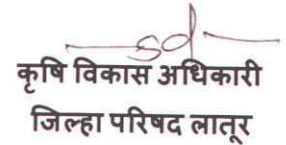 sd
कृषि विकास अधिकारी
जिल्हा परिषद लातूर